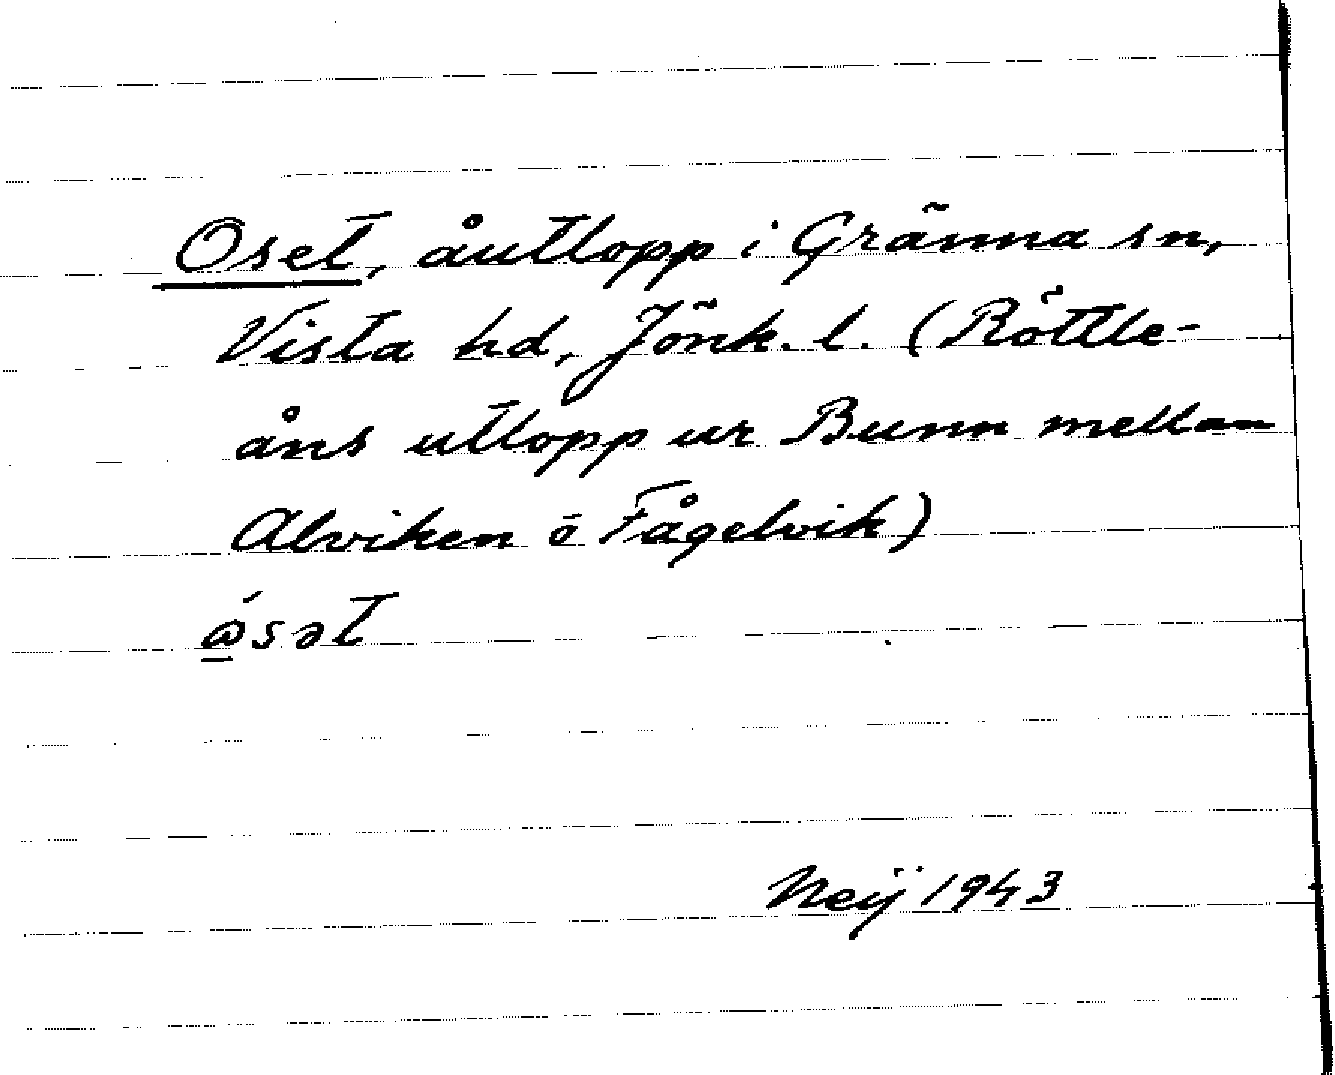 Oset, åutlopp i Gränna sn,
Vista hd, Jönk. l. (Röttle-
åns utlopp ur Bunn mellan
Alviken o Fågelvik)
ǿsət
Neij 1943